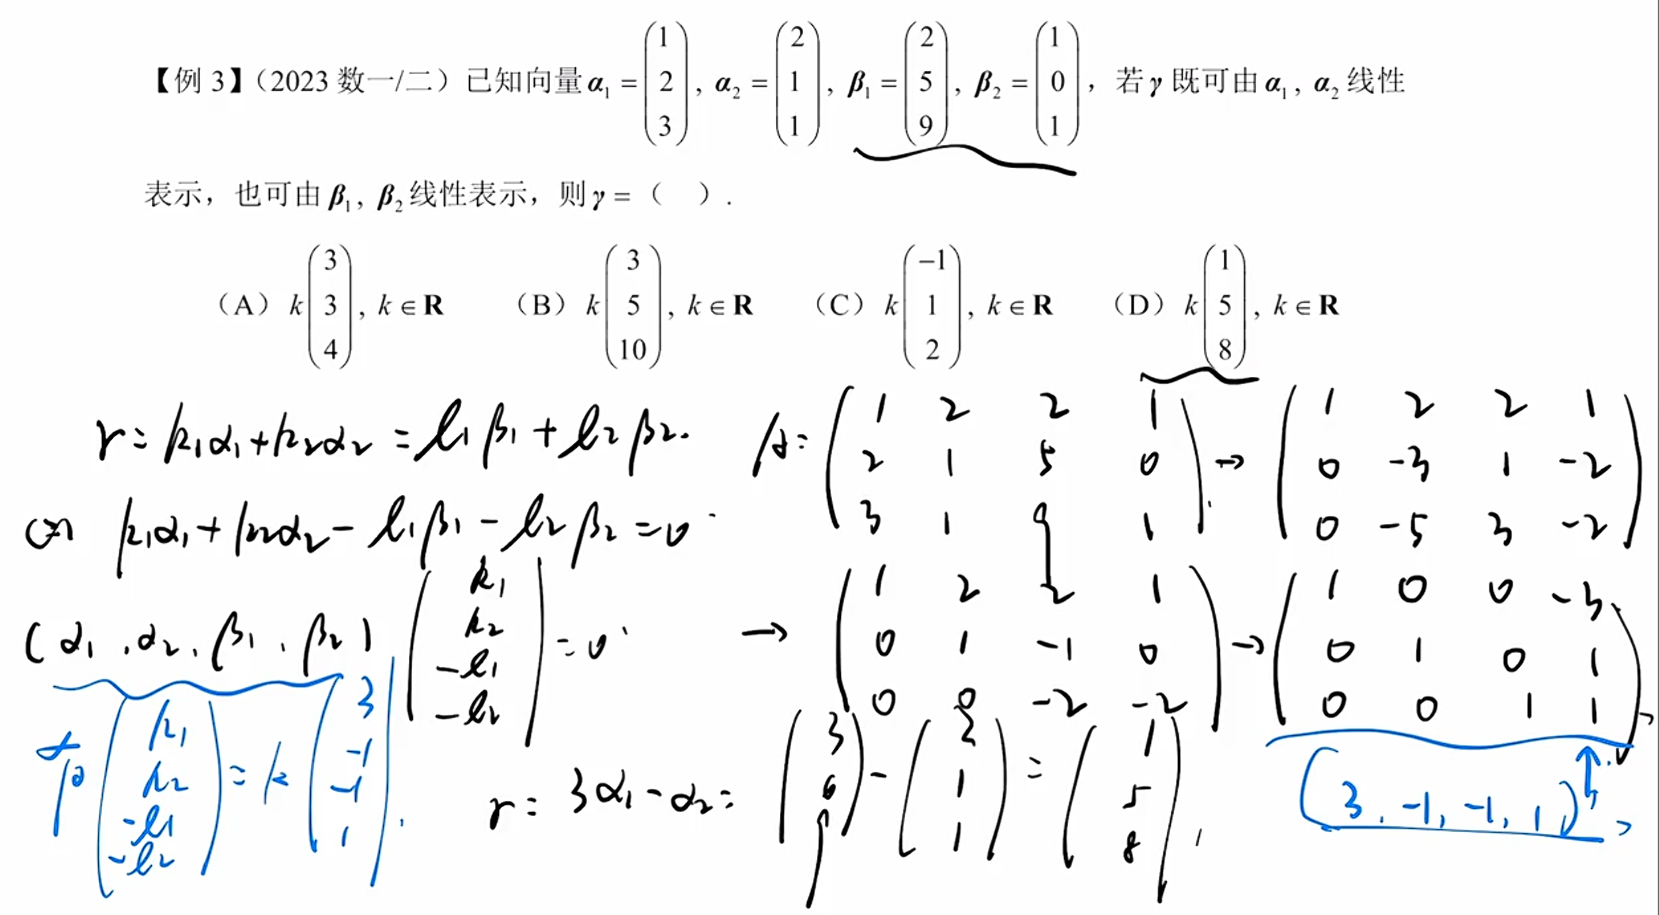 【例 3】(2023 数一/二) 已知向量 α₁ = (1 2 3), α₂ = (2 1 1), β₁ = (2 5 9), β₂ = (1 0 1), 若 γ 既可由 α₁, α₂ 线性
表示, 也可由 β₁, β₂ 线性表示, 则 γ = ( ).
(A) k (3 3 4), k ∈ R (B) k (3 5 10), k ∈ R (C) k (−1 1 2), k ∈ R (D) k (1 5 8), k ∈ R
γ = k₁α₁ + k₂α₂ = l₁β₁ + l₂β₂.
k₁α₁ + k₂α₂ − l₁β₁ − l₂β₂ = 0
(α₁, α₂, β₁, β₂) (k₁ k₂ −l₁ −l₂) = 0
(k₁ k₂ −l₁ −l₂) = k (3 −1 −1 1).
A = (1 2 2 1
2 1 5 0
3 1 9 1)
→ (1 2 2 1
0 -3 1 -2
0 -5 3 -2)
→ (1 2 2 1
0 1 -1 0
0 0 -2 -2)
→ (1 0 0 -3
0 1 0 1
0 0 1 1)
(3, -1, -1, 1)
γ = 3α₁ − α₂ = (3 6 9) − (2 1 1) = (1 5 8)